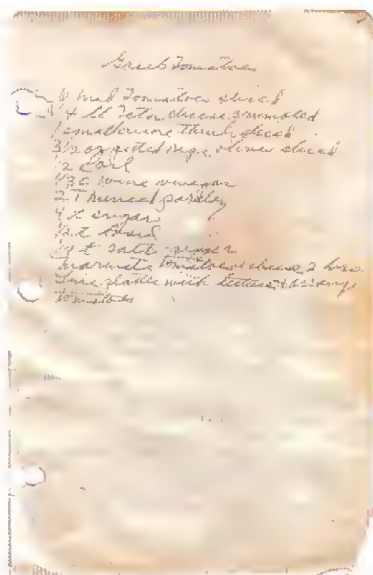 Greek Tomatoes
6 med Tomatoes sliced
1/4 lb Feta cheese crumbled
1 small onion thinly sliced
3 1/2 oz pitted ripe olives sliced
1/2 c oil
1/3 c wine vinegar
2 T minced parsley
4 t sugar
1/2 t basil
1/4 t salt pepper
Marinate tomatoes cheese 2 hrs.
Line platter with lettuce arrange
tomatoes